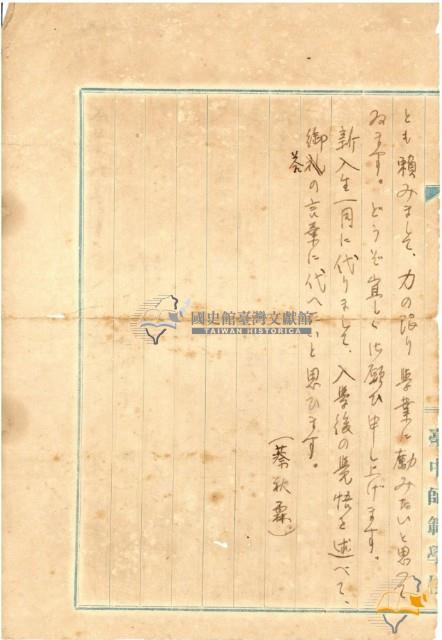 とも頼みまして、力の限り學業に勵みたいと思つて
ゐます。どうぞ宜しく御願ひ申し上げます。
新入生一同に代りまして、入學後の覺悟を述べて、
御礼の言葉に代へたいと思ひます。
答
(蔡秋霖)
臺中師範學
國史館臺灣文獻館
TAIWAN HISTORICA